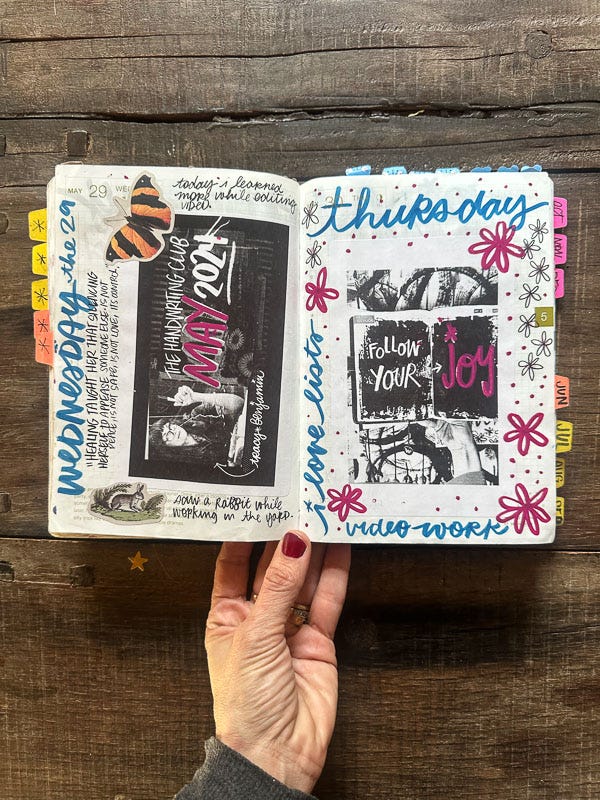 MAY 29 WE
today i learned
more while editing
video.
WEDNESDAY the 29
"HEALING TAUGHT HER THAT SILENCING
HERSELF TO APPEASE SOMEONE ELSE IS NOT
PEACE, IS NOT SAFE, IS NOT LOVE; ITS CONTROL.
THE HANDWRITING CLUB
MAY 2024
tracy benjamin
saw a rabbit while
working in the yard.
thursday
i love lists
FOLLOW
YOUR
joy
video work
OCT
NOV
5
JUN
JUL
AUG